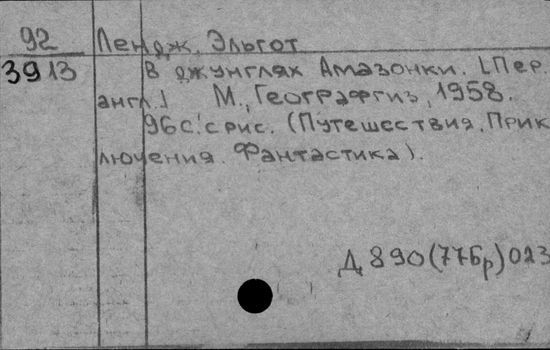 92 Лендж, Эльгот
3913 В джунглях Амазонки. [Пер.
англ.] М., Географгиз, 1958.
96с. с рис. (Путешествия. Прик
лючения. Фантастика).
Д 890(77Бр)023